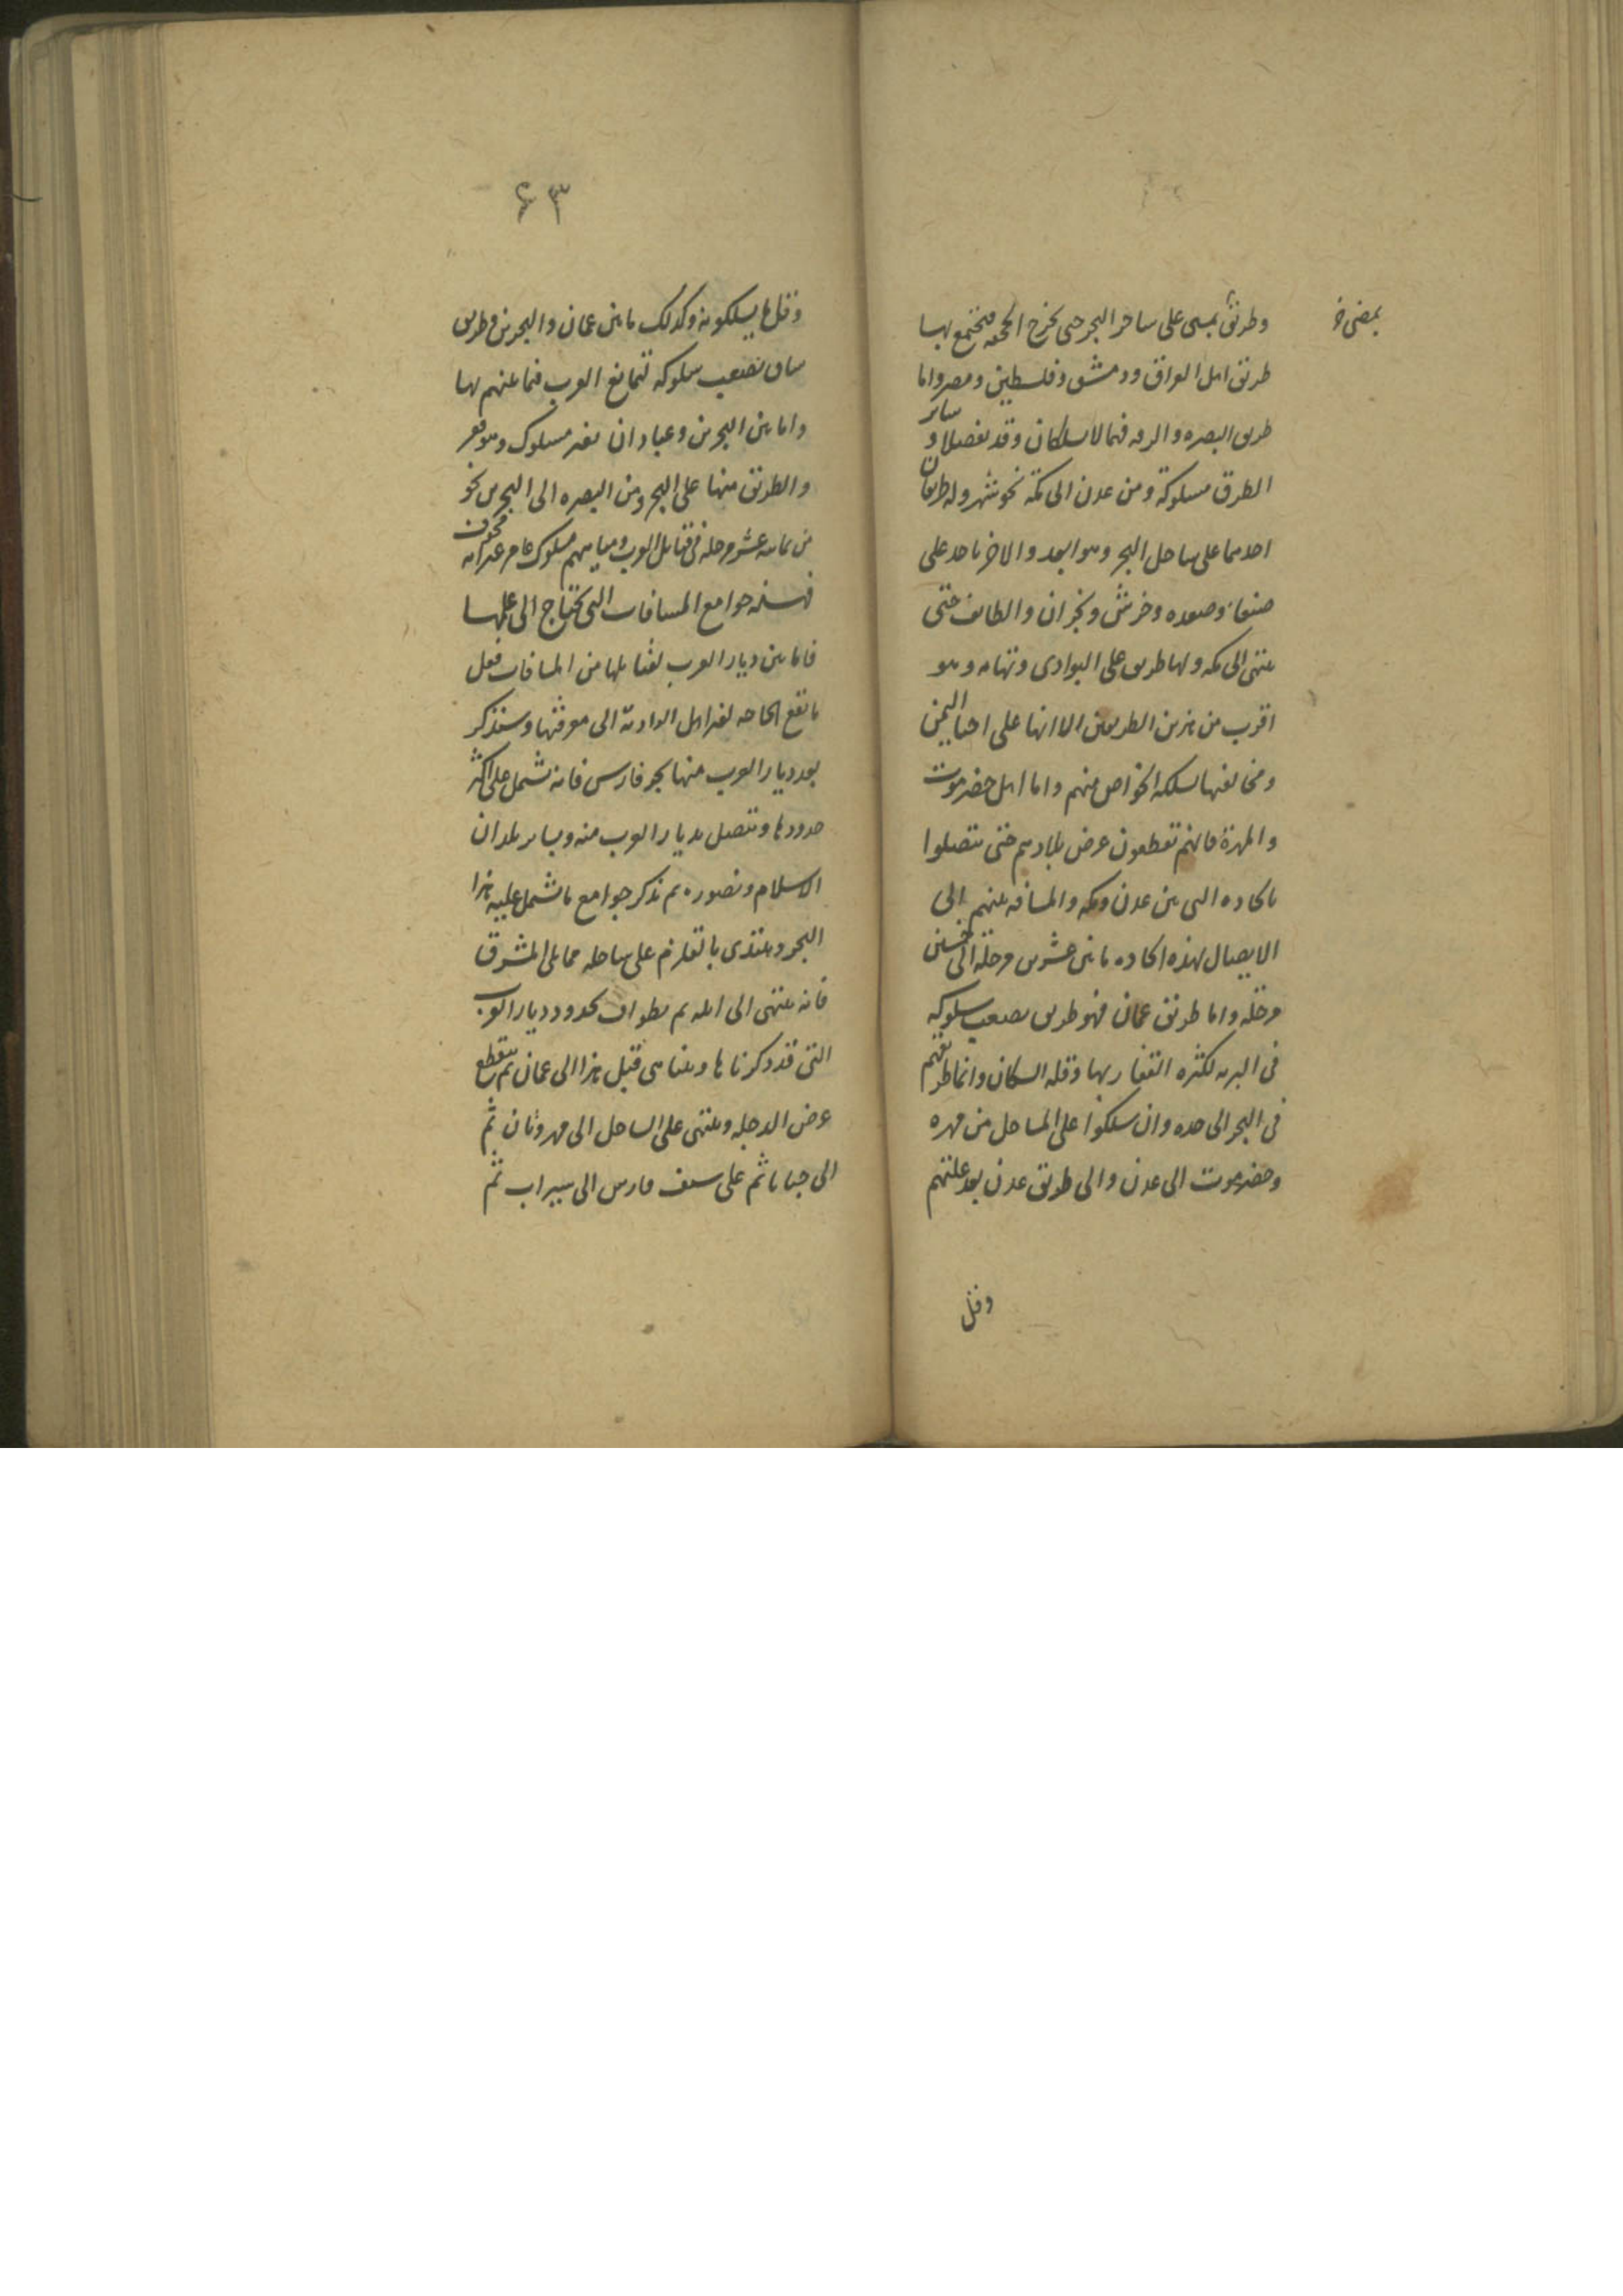 وطريق يمسى على ساحل البحر حتى يخرج الجحفه فيجتمع بها
يمضى خ
طريق اهل العراق ودمشق وفلسطين ومصر واما
طريق البصره والرقه فيهما لا يسلكان وقد تفصلا و سائر
الطرق مسلوكة ومن عدن الى مكة نحو شهر وله طريقان
احدهما على ساحل البحر وهو ابعد والاخر ياخذ على
صنعاء وصعده وجرش ونجران والطايف حتى
ينتهى الى مكه ولها طريق على البوادى وتهامه وهو
اقرب من هذين الطريقين الا انها على احيا اليمن
ومخالفيها يسلكه الخواص منهم واما اهل حضرموت
والمهرة فانهم يقطعون عرض بلادهم حتى يتصلوا
بالجاده التى بين عدن ومكه والمسافه بينهم الى
الايصال بهذه الجاده ما بين عشرين مرحلة الى خمسين
مرحلة واما طريق عمان فهو طريق يصعب سلوكه
فى البريه لكثرة القفار بها وقله السكان وانما طريقهم
فى البحر الى جده وان سلكوا على الساحل من مهره
وحضرموت الى عدن والى طريق عدن بعد عليهم
وقل
٦٣
وقل ما يسلكونه وكذلك ما بين عمان والبحرين وطريق
شاق يصعب سلوكه لتمانع العرب فيما بينهم بها
واما بين البحرين وعبادان بغير مسلوك وهو قفر
والطريق منها على البحر ومن البصره الى البحرين نحو
من ثمانيه عشر مرحله فى قبائل العرب ومياههم مسلوك عامر غير انه مخوف
فهذه جوامع المسافات التى يحتاج الى علمها
فاما بين ديار العرب لقبايلها من المسافات فقل
ما تقع الحاجه لغير اهل البادية الى معرفتها وسنذكر
بعد ديار العرب منها بحر فارس فانه يشمل على اكثر
حدودها ويتصل بديار العرب منه وبسائر بلدان
الاسلام ونصوره ثم نذكر جوامع ما يشمل عليه هذا
البحر ويبتدى بالقلزم على ساحله مما يلى المشرق
فانه ينتهى الى ايله ثم يطوف بحدود ديار العرب
التى قد ذكرناها وبينا من قبل هذا الى عمان ثم يقطع
عرض الدجله وينتهى على الساحل الى مهروبان ثم
الى جنابا ثم على سيف فارس الى سيراب ثم